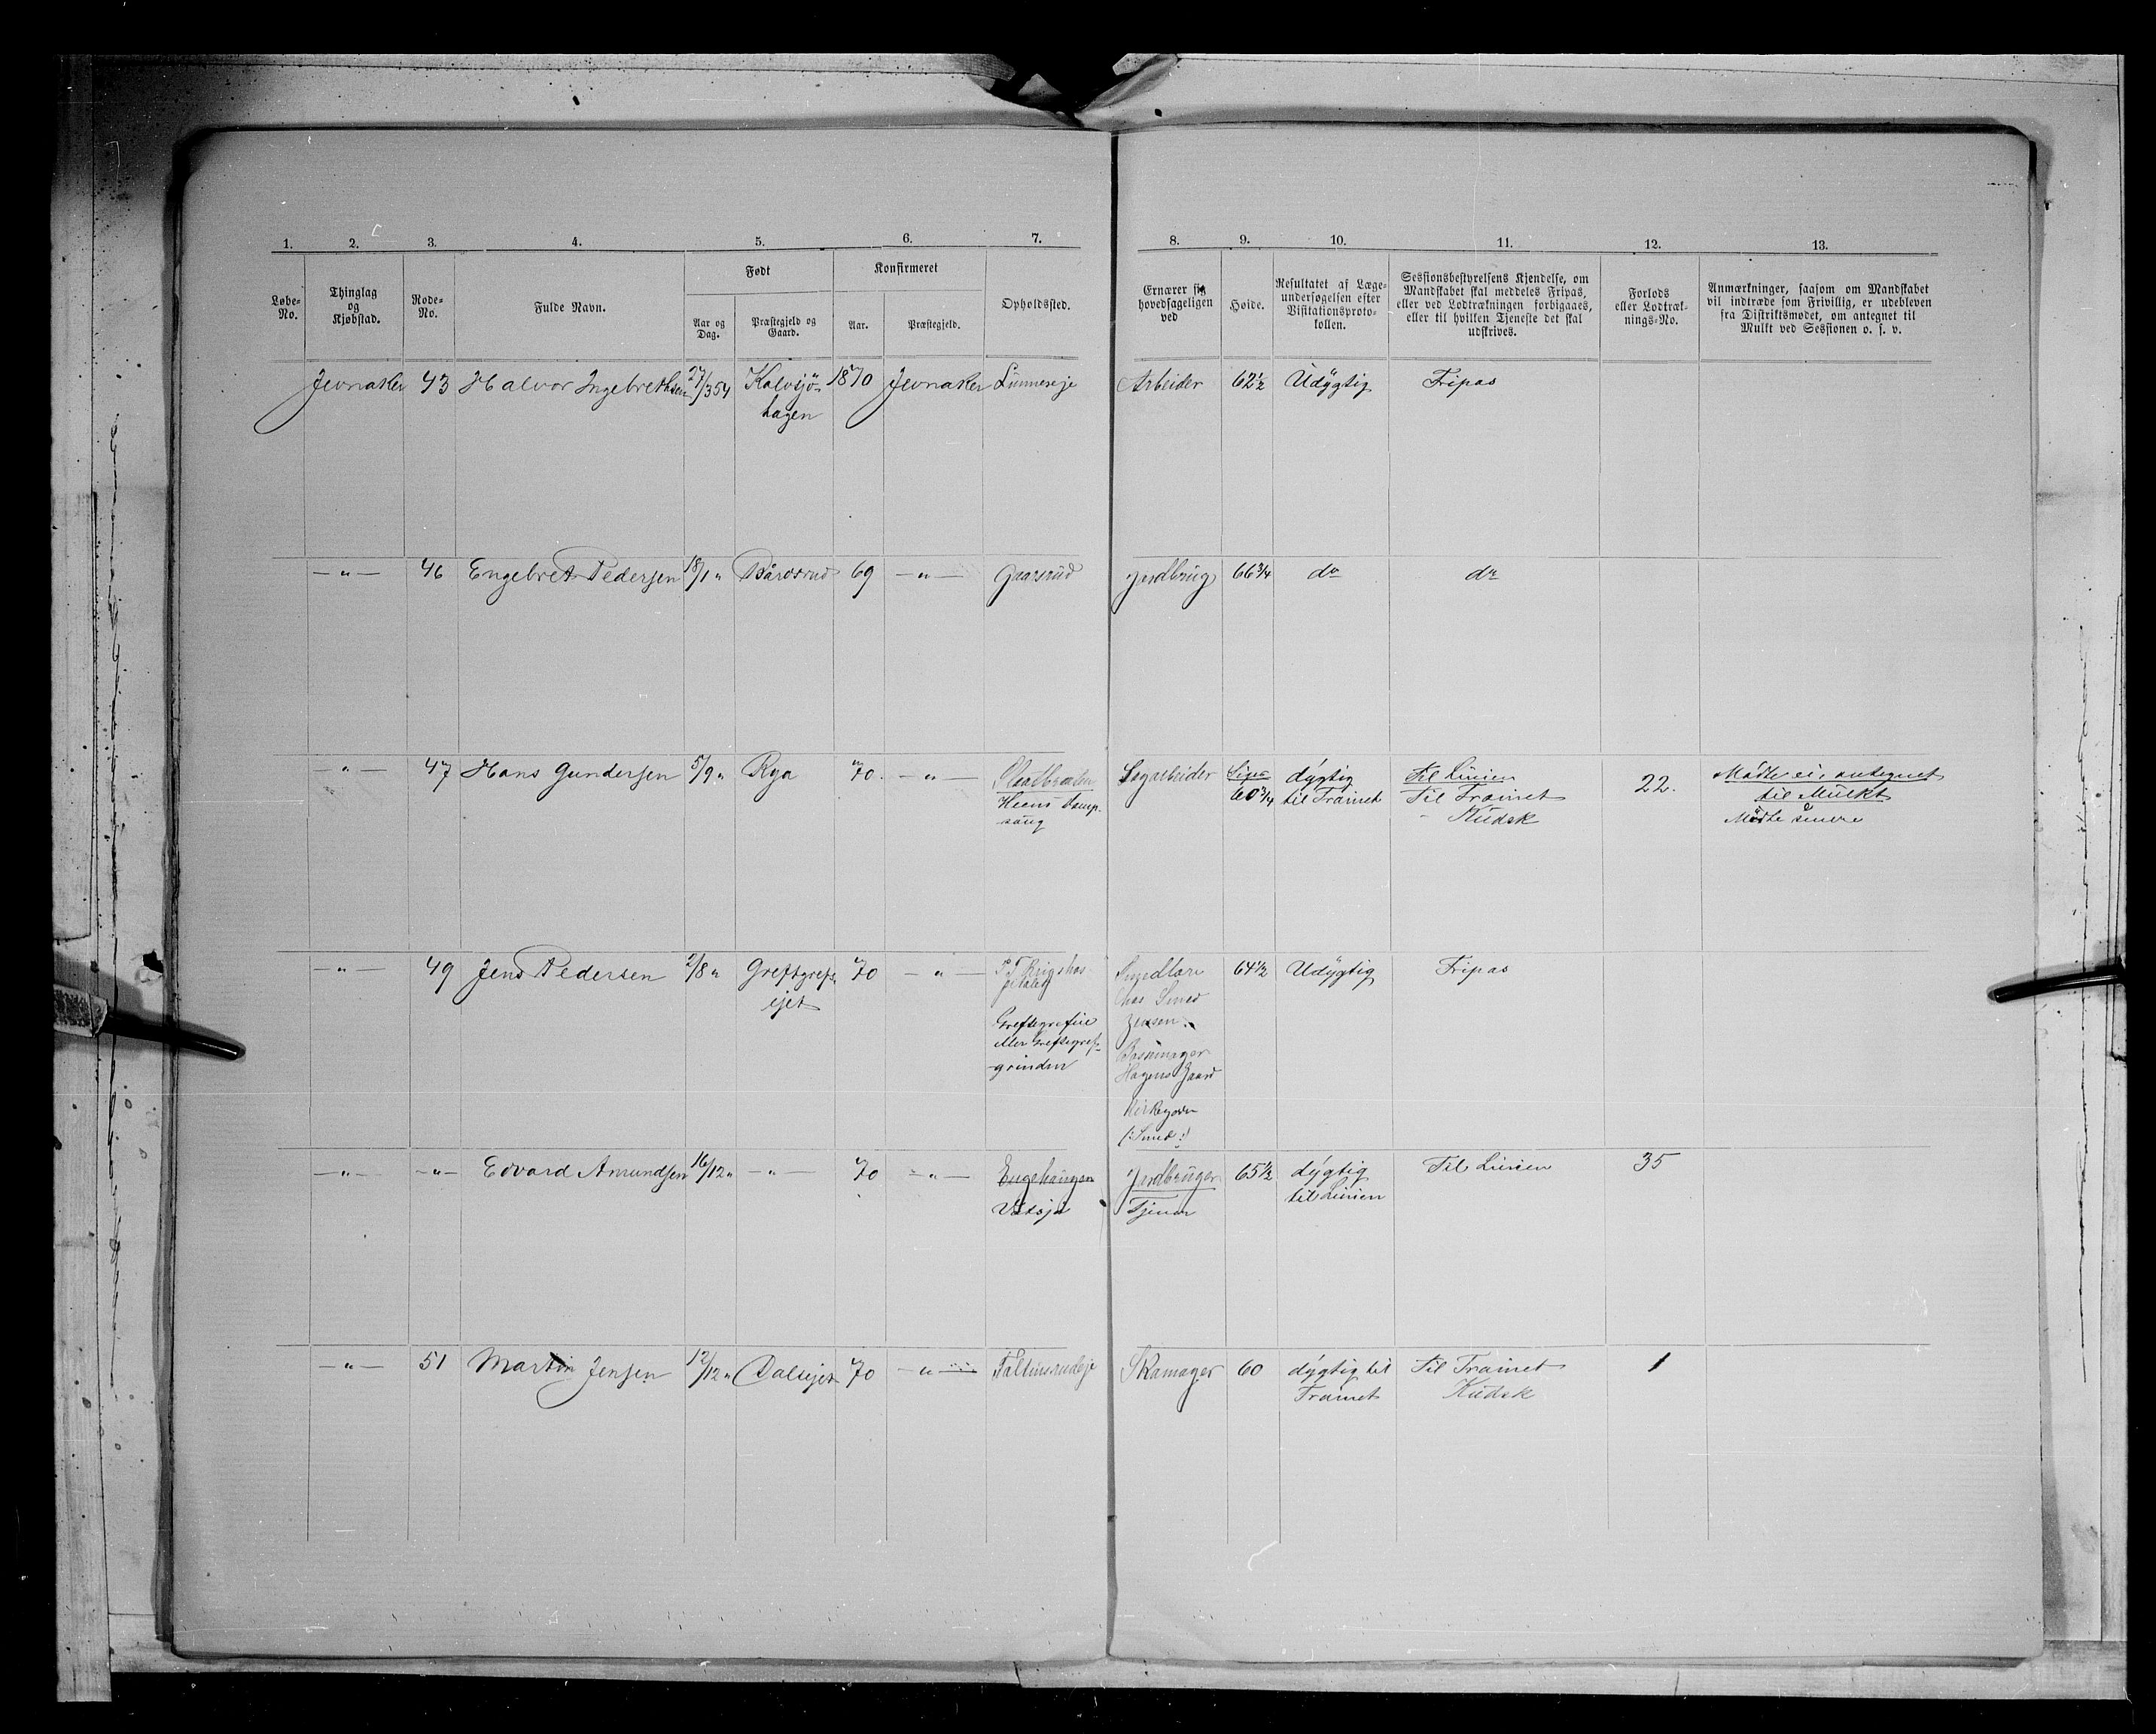 1. 2. 3. 4. 5. 6. 7. 8. 9. 10. 11. 12. 13.
Løbe-No.
Thinglag og Kjøbstad.
Rode-No.
Fulde Navn.
Født
Aar og Dag.
Præstegjeld og Gaard.
Konfirmeret
Aar.
Præstegjeld.
Opholdssted.
Ernærer sig hovedsageligen ved
Høide.
Resultatet af Lægeundersøgelsen efter Visitationsprotokollen.
Sessionsbestyrelsens Kjendelse, om Mandskabet skal meddeles Fripas, eller ved Lodtrækningen forbigaaes, eller til hvilken Tjeneste det skal udskrives.
Forlods eller Lodtræknings-No.
Anmærkninger, saasom om Mandskabet vil indtræde som Frivillig, er udebleven fra Distriktsmødet, om antegnet til Mulkt ved Sessionen o. s. v.
Jevnaker 43 Halvor Ingebrethsen 27/3 54 Kalvsjö- 1870 Jevnaker Linnereje Arbeider 62½ Udÿgtig Fripas
hagen
—"— 46 Engebret Pedersen 18/1 " Bårdsrud 69 —"— Gaarsrud Jordbrug 66¾ do do
—"— 47 Hans Gundersen 5/9 " Rya 70. —"— Sagarbeider dÿgtig Til Linien 22. Mødte ei, antegnet
Heens Damp- 60¾ til Trainet Til Trainet til Mulkt
saug Kudsk Mødte senere
—"— 49 Jens Pedersen 2/8 " Greftgrefs 70 —"— Rigshos- Smedlære 64½ Udÿgtig Fripas
ejet pitalet hos Smed
Jensen
Greftegrefeie
eller Greftegrefs-
grinden Hagens Gaard
Kirkegaden
(: Smed :)
—"— —"— Edvard Amundsen 16/12 " —"— 70 —"— Engehaugen Jordbruger 65½ dÿgtig Til Linien 35
Tjener til Linien
—"— 51 Martin Jensen 12/12 " Dalsejet 70 —"— Faltinsrudeje Skomager 60 dÿgtig til Til Trainet 1
Trainet Kudsk